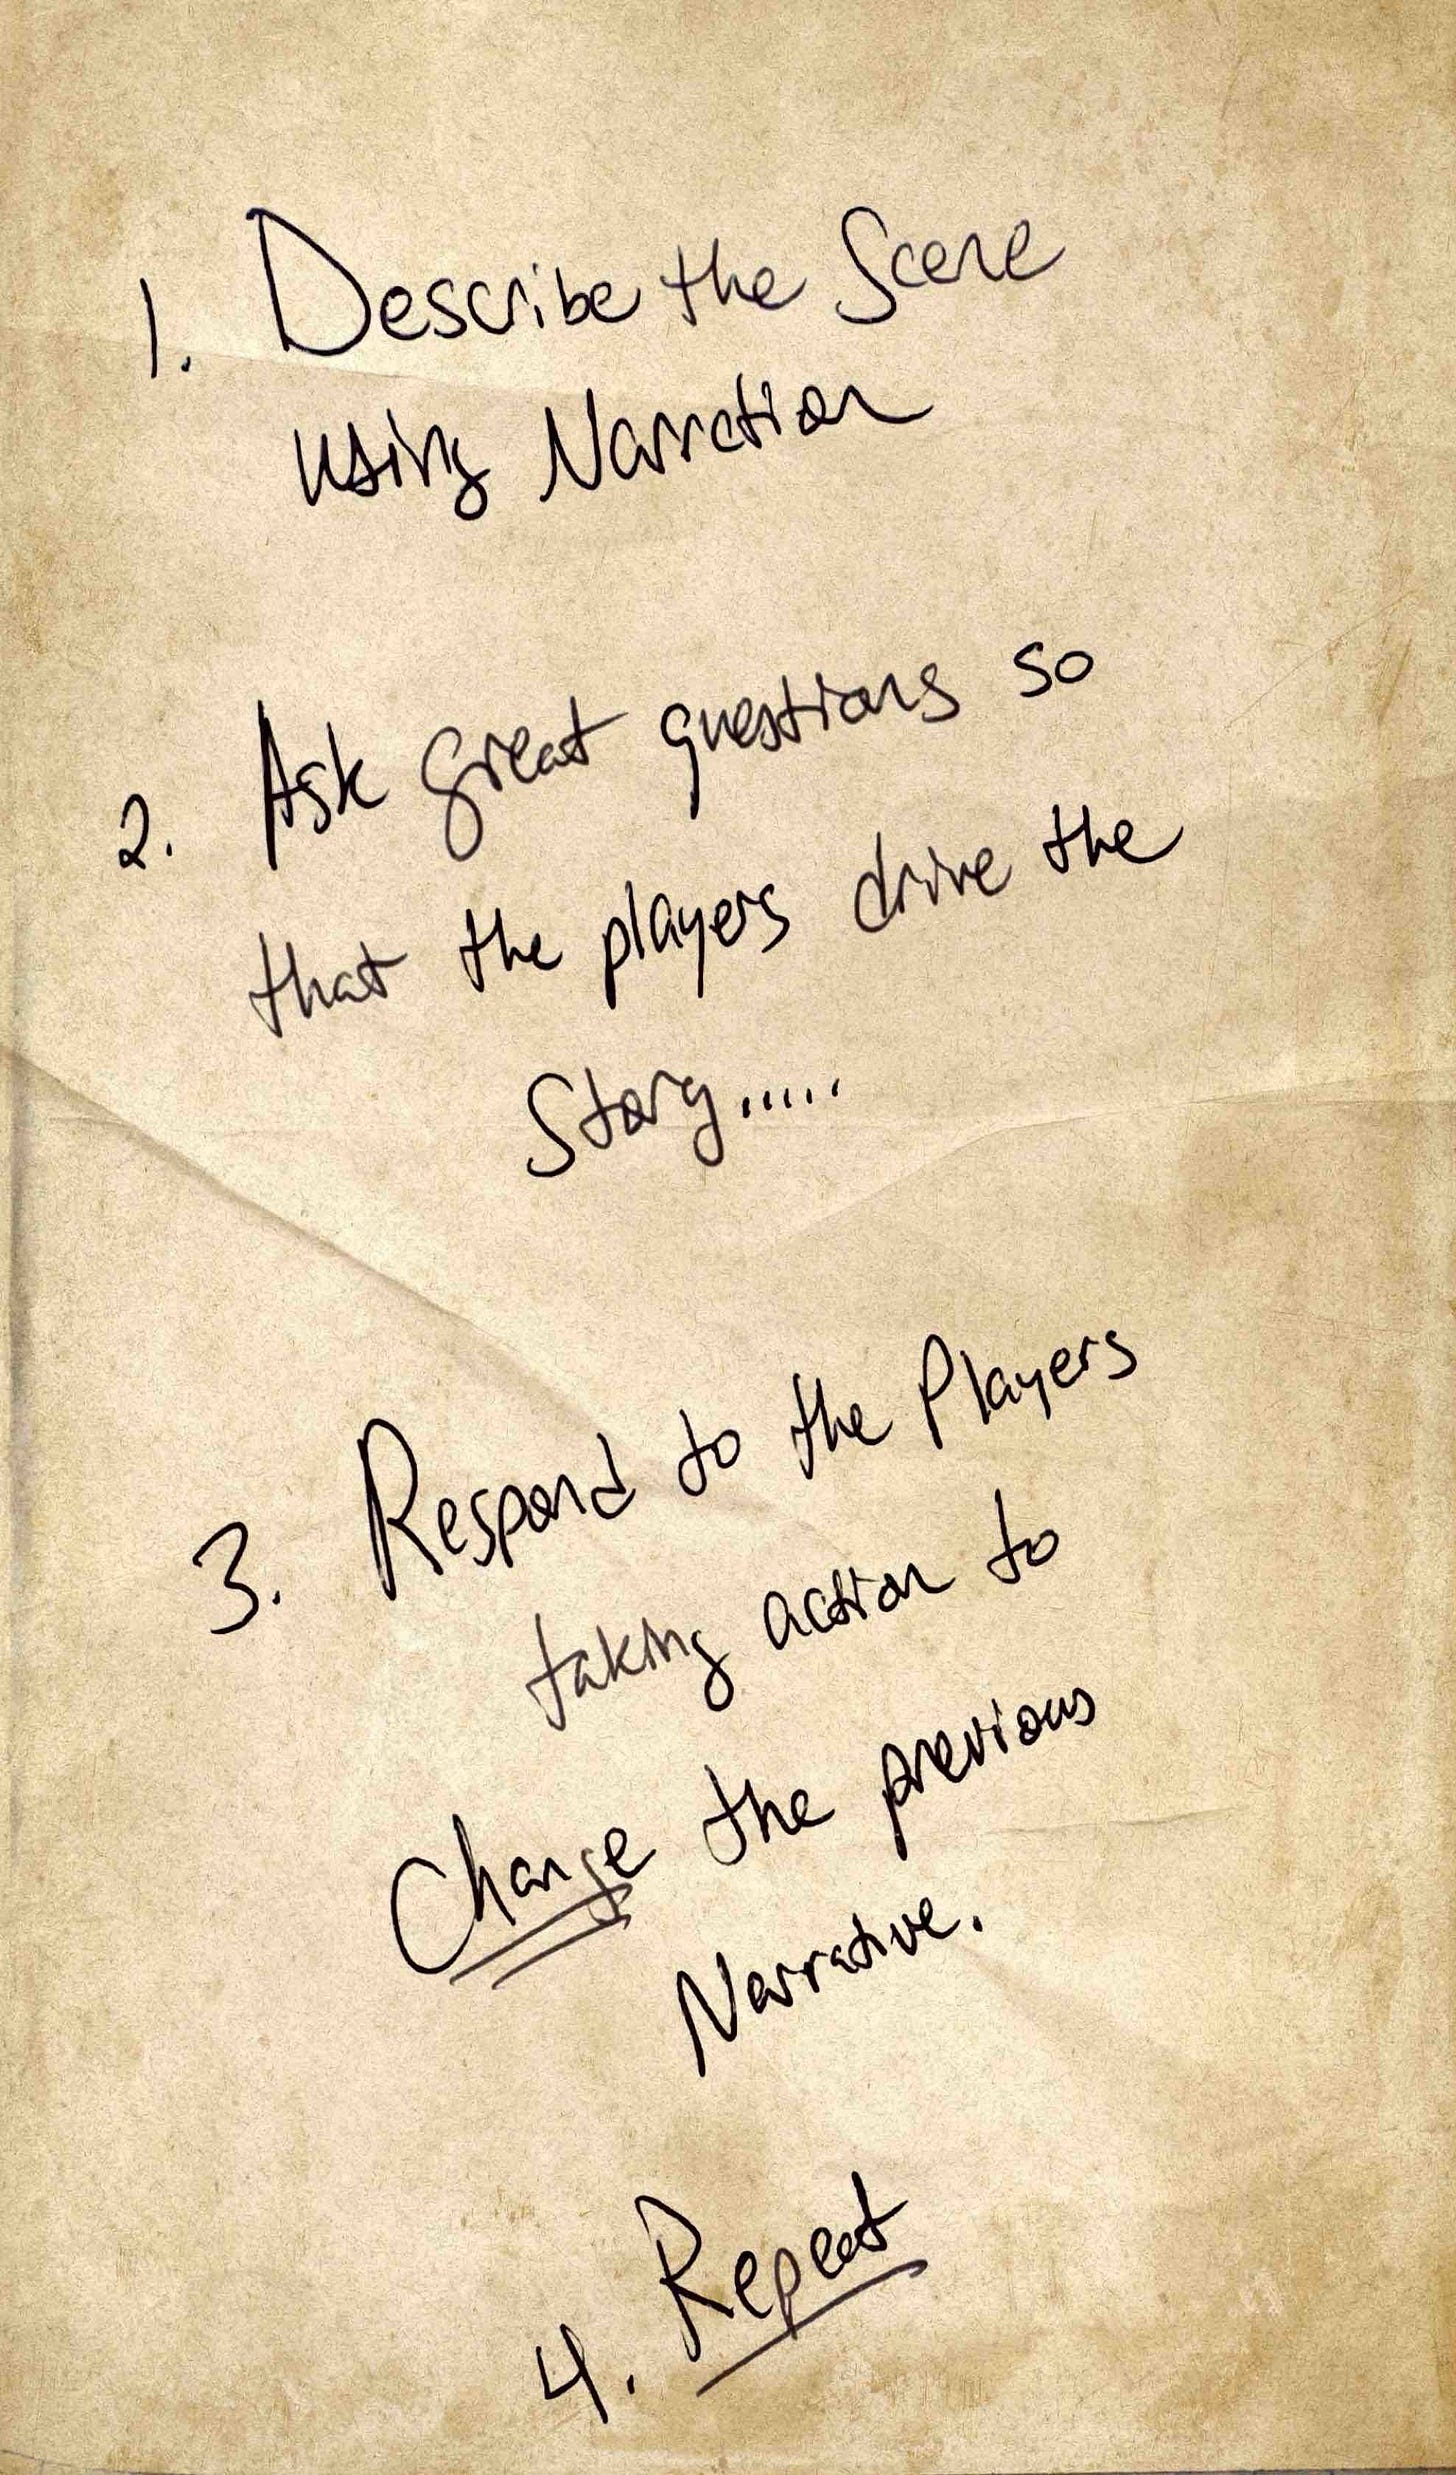 1. Describe the Scene
using Narration
2. Ask great questions so
that the players drive the
Story.....
3. Respond to the Players
taking action to
Change the previous
Narrative.
4. Repeat